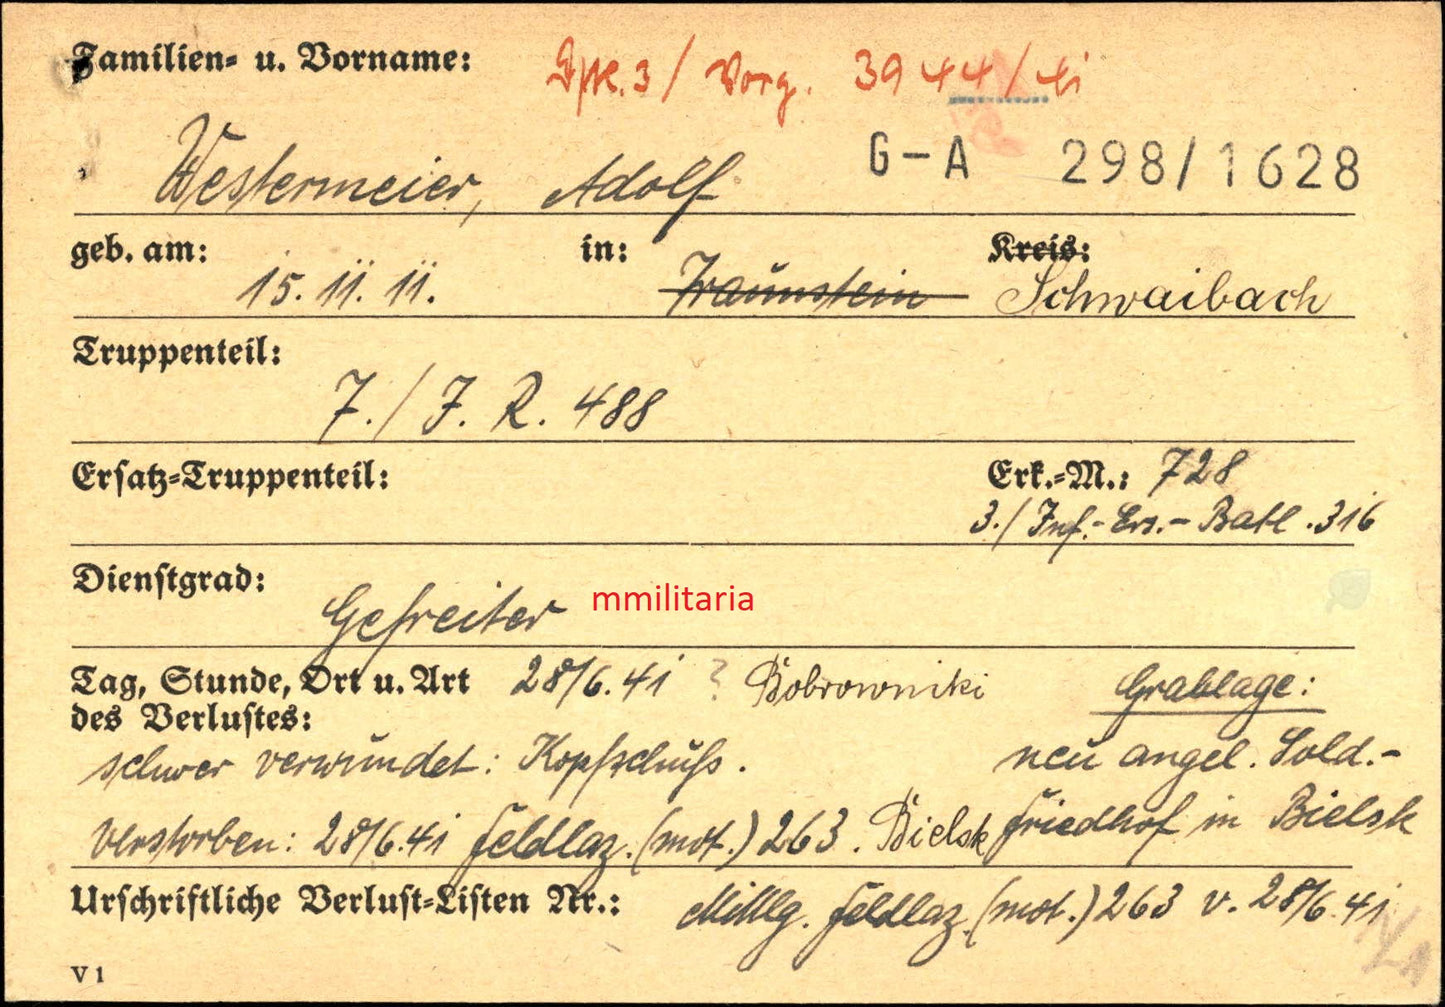 Familien- u. Vorname:
Vorg. 3944/41
Westermeier, Adolf G-A 298/1628
geb. am: 15. 11. 11. in: Traunstein Kreis: Schwaibach
Truppenteil:
7./J. R. 488
Ersatz-Truppenteil: Erk.-M.: 728
3./Inf.-Ers.-Batl. 316
Dienstgrad:
Gefreiter mmilitaria
Tag, Stunde, Ort u. Art des Verlustes: 28/6.41 ? Bobrowniki
schwer verwundet: Kopfschuß.
verstorben: 28/6.41 Feldlaz. (mot.) 263. Bielsk
Grablage:
neu angel. Sold.-
Friedhof in Bielsk
Urschriftliche Verlust-Listen Nr.: Mittlg. Feldlaz. (mot.) 263 v. 28/6.41
V 1